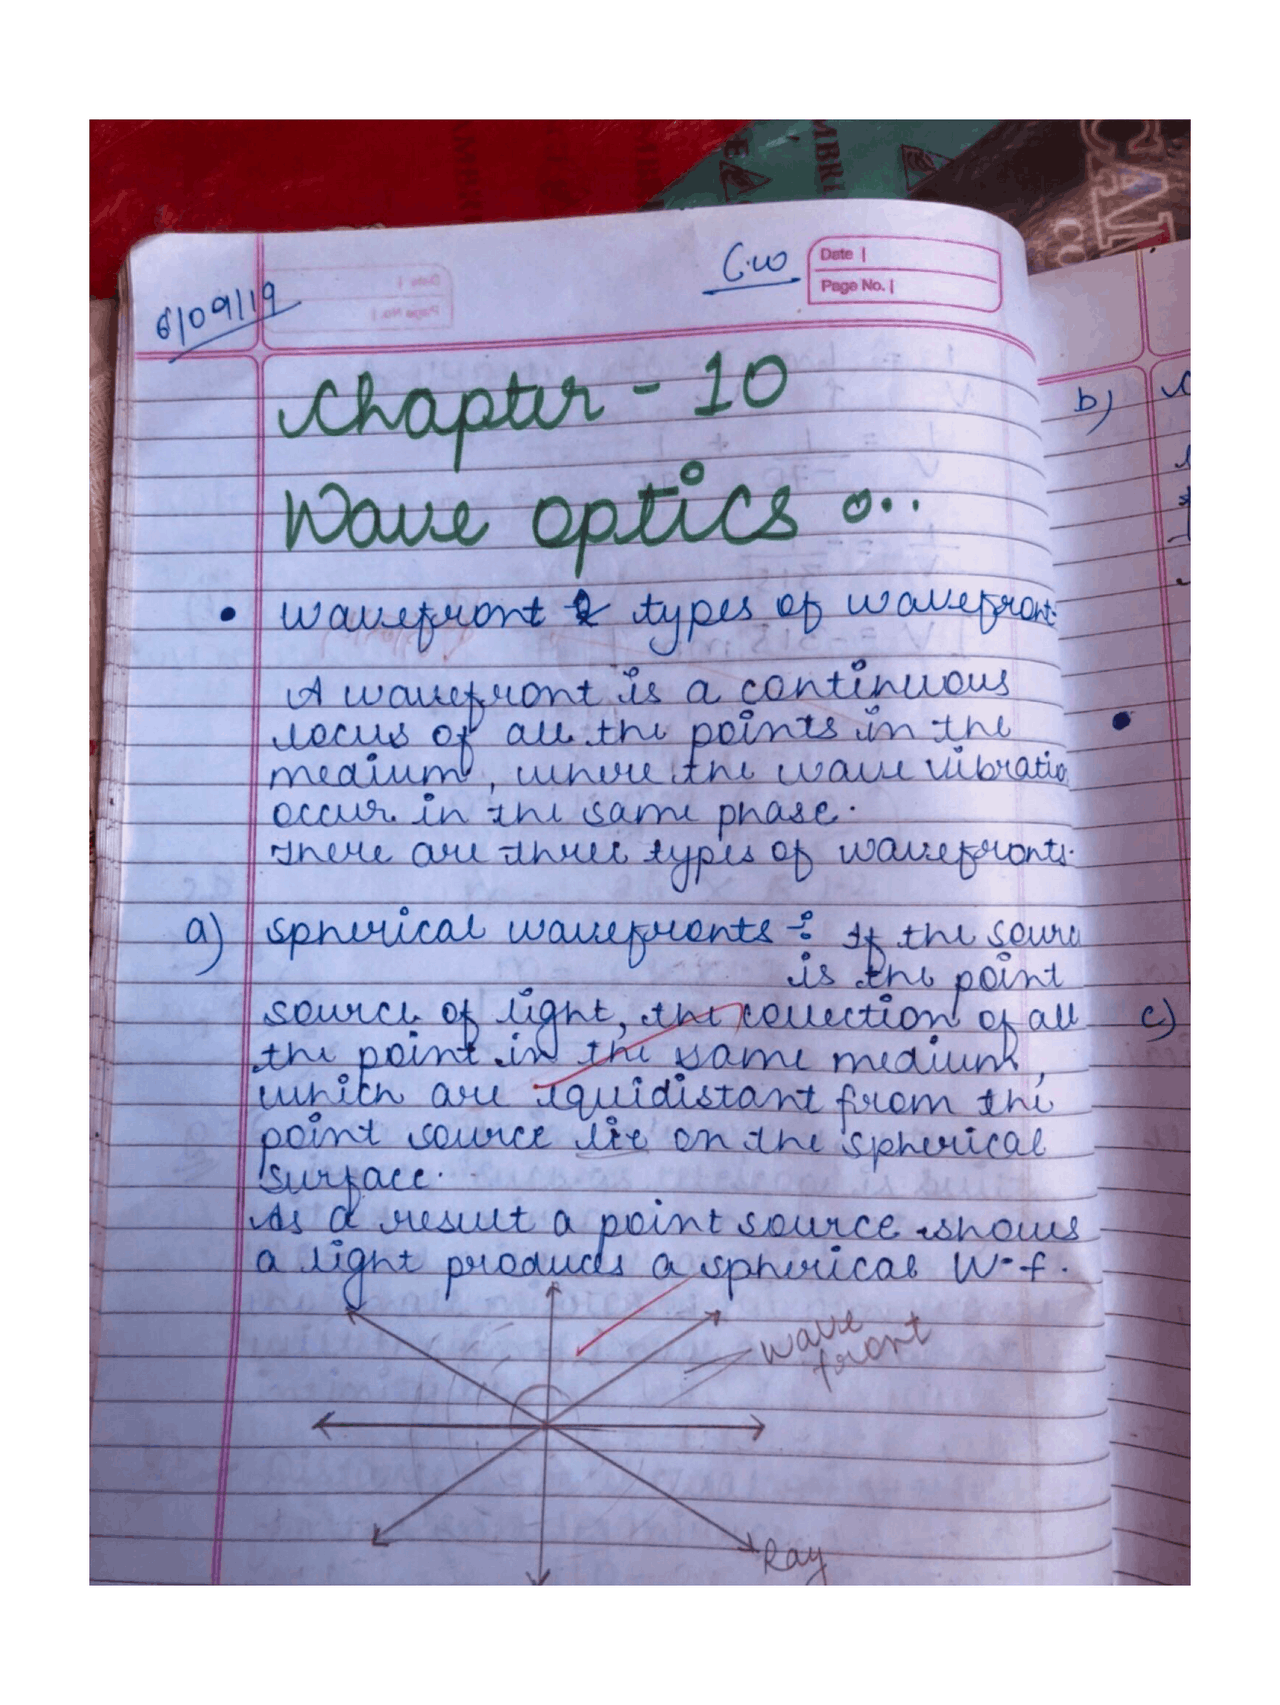 6/09/19
C.W
Date |
Page No. |
Chapter - 10
Wave optics
• wavefront & types of wavefront.
A wavefront is a continuous
locus of all the points in the
medium, where the wave vibratio
occur in the same phase.
There are three types of wavefronts.
a) spherical wavefronts :- If the sourc
is the point
source of light, the collection of all
the point in the same medium,
which are equidistant from the
point source lie on the spherical
surface.
As a result a point source shows
a light produces a spherical W.f.
wave
front
Ray
b)
•
c)